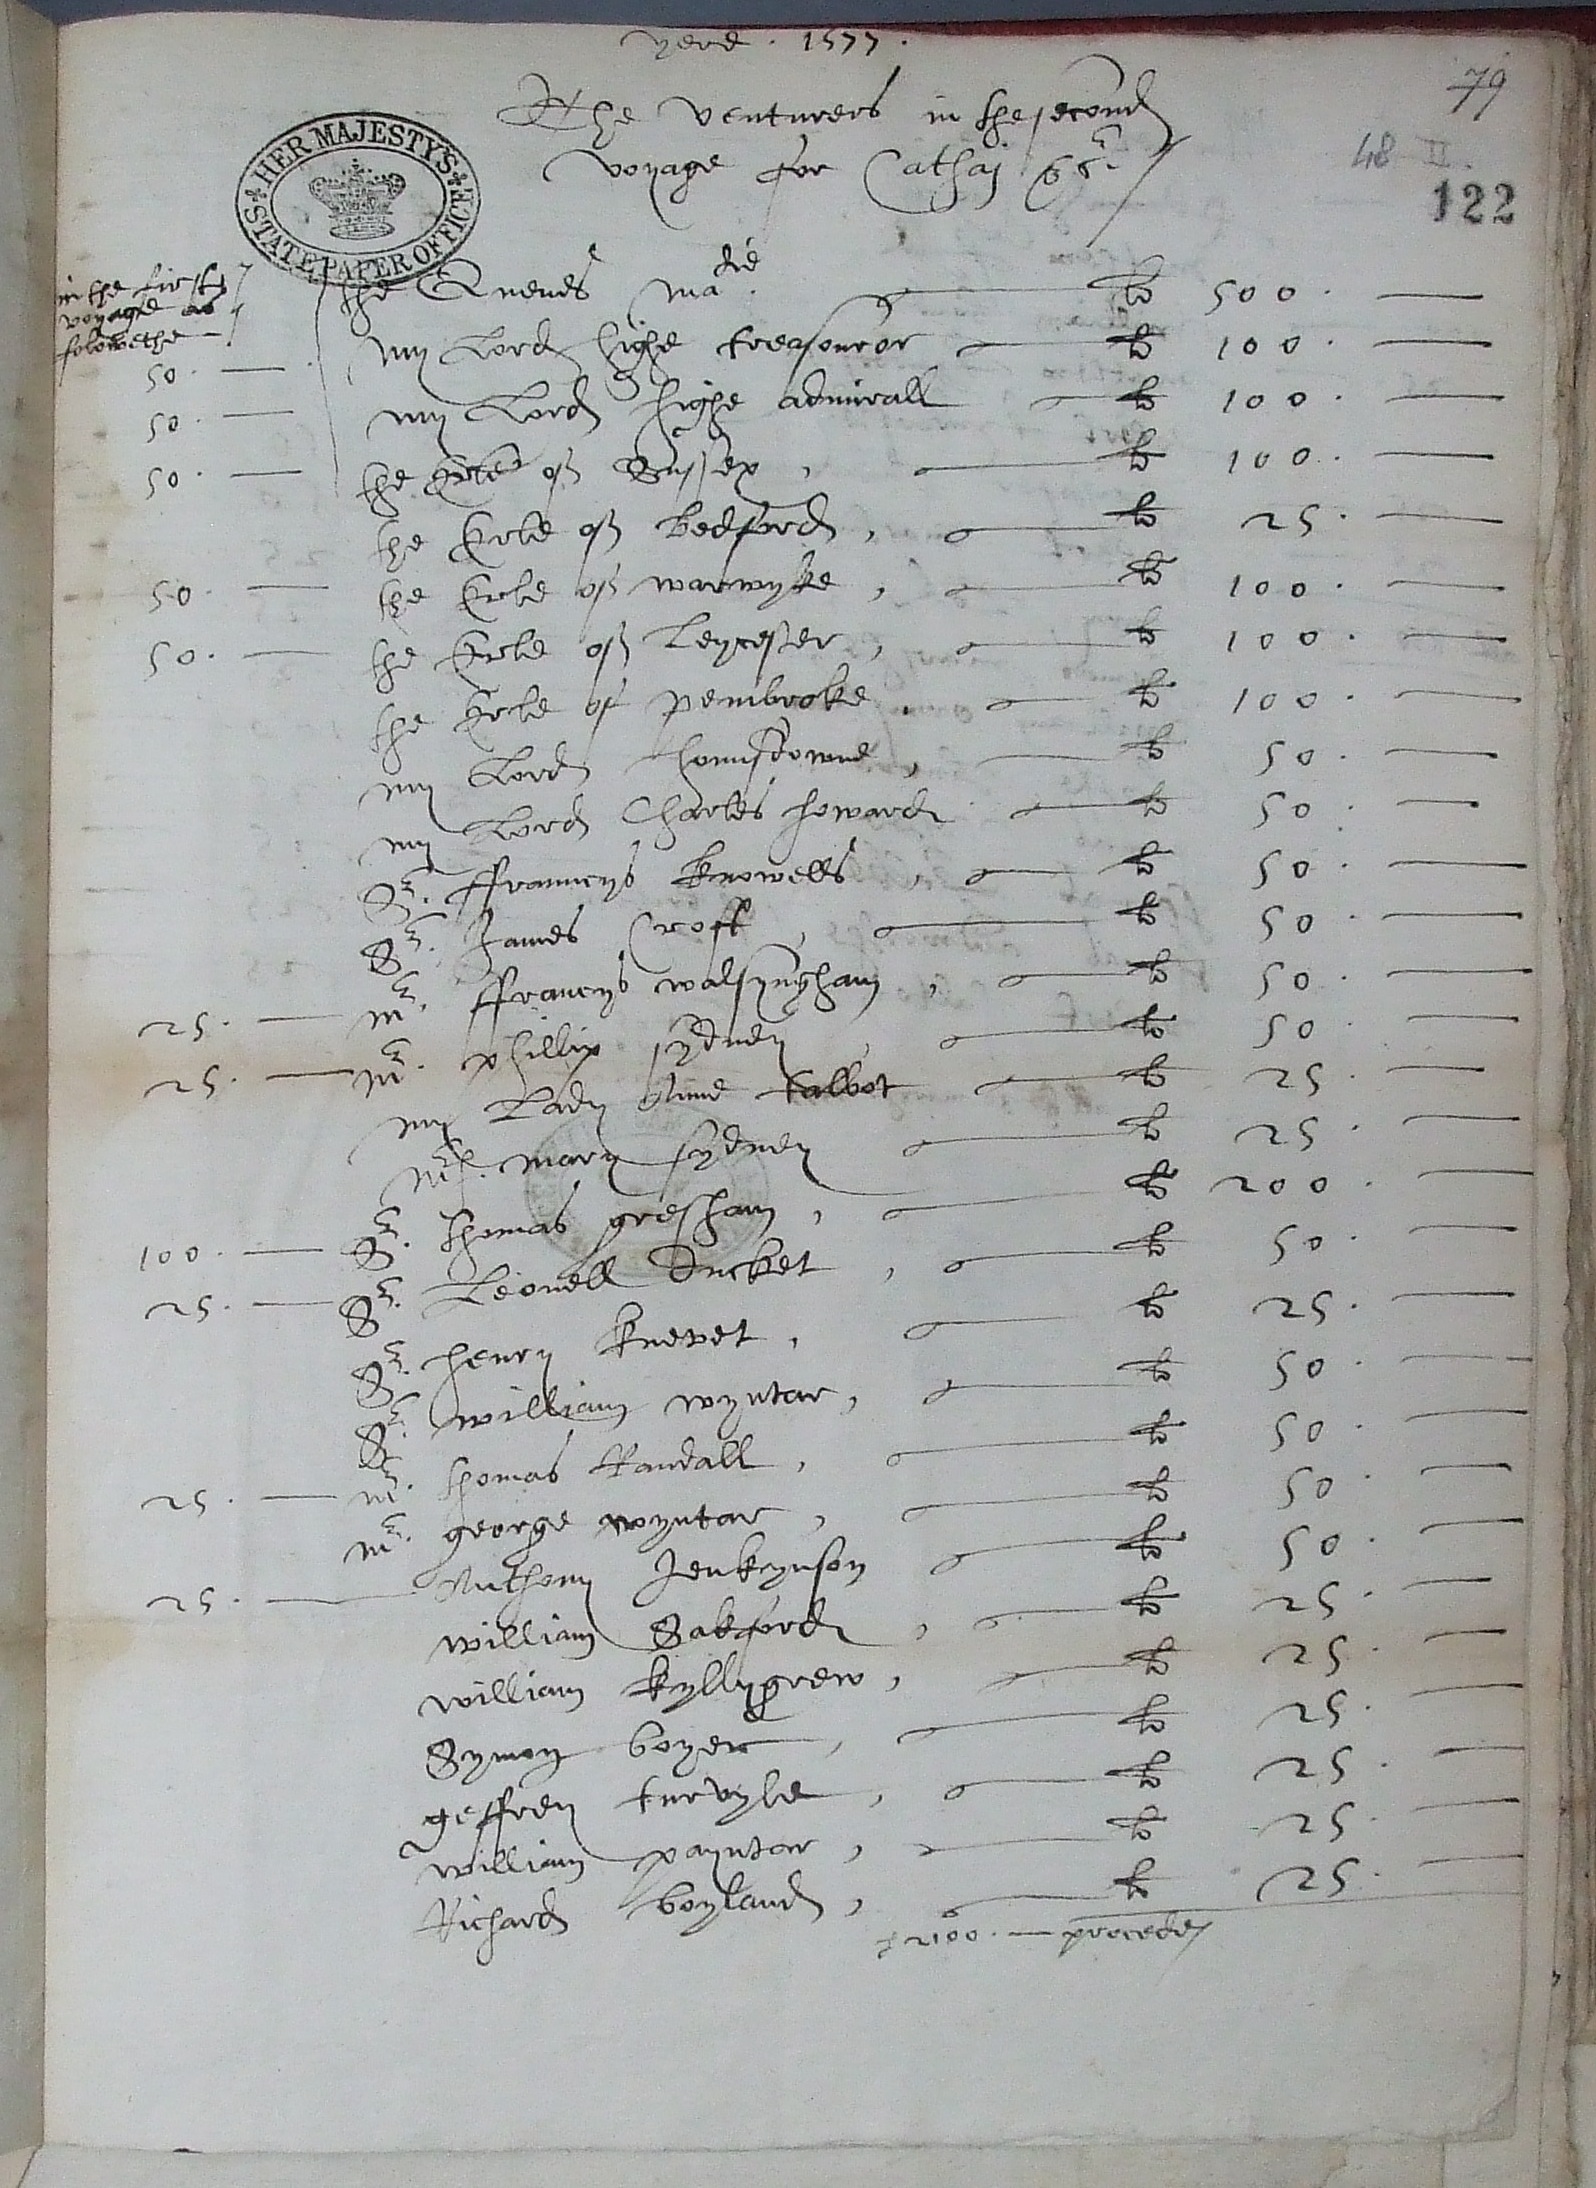 yere . 1577 .
79
The venturers in the second
voyage for Cathaj &c.
48 II.
122
HER MAJESTY'S STATE PAPER OFFICE
in the first
voyage as
folowethe
the Quenes Matie. — li 500 . —
50 . — my Lord highe treasourer — li 100 . —
50 . — my Lord highe admirall — li 100 . —
50 . — the Erle of Sussex , — li 100 . —
the Erle of Bedford , — li 25 . —
50 . — the Erle of warwyke , — li 100 . —
50 . — the Erle of Leycester , — li 100 . —
the Erle of pembroke . — li 100 . —
my Lord hounsdowne , — li 50 . —
my Lord Charles howard — li 50 . —
Sr. ffrauncys knowells , — li 50 . —
Sr. James Croft , — li 50 . —
25 . — mr. ffrancys walsyngham , — li 50 . —
25 . — mr. phillip sydney , — li 50 . —
my Lady Anne talbot — li 25 . —
mrs. mary sydney — li 25 . —
100 . — Sr. thomas gresham , — li 200 . —
25 . — Sr. Leonell Ducket , — li 50 . —
Sr. henry knevet , — li 25 . —
Sr. william wyntar , — li 50 . —
25 . — mr. thomas Randall , — li 50 . —
mr. george wyntar , — li 50 . —
25 . — Anthony Jenkynson — li 50 . —
william Sakford , — li 25 . —
william kyllygrew , — li 25 . —
Symon boyer , — li 25 . —
geffrey turvyle , — li 25 . —
william payntar , — li 25 . —
Richard boyland , — li 25 . —
2100 . —